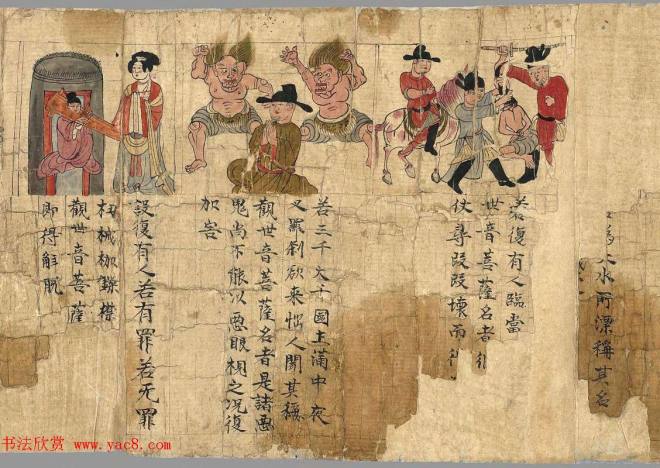 大水所漂稱其名
若復有人臨當
世音菩薩名者
仗尋段段壞而
若三千大千國土滿中夜
叉羅刹欲来惱人聞其稱
觀世音菩薩名者是諸惡
鬼尚不能以惡眼視之况復
加害
設復有人若有罪若无罪
杻械枷鏁
觀世音菩薩
即得解脫
书法欣赏 www.yac8.com